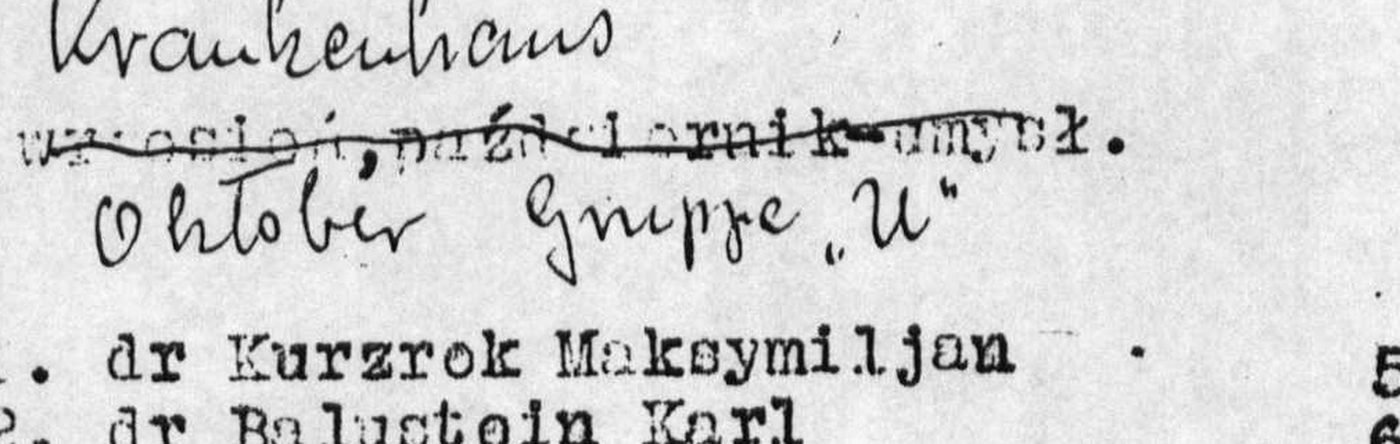 Krankenhaus
wrzesień, październik umysł.
Oktober Gruppe „U“
1. dr Kurzrok Maksymiljan 5
2. dr Balustein Karl 6